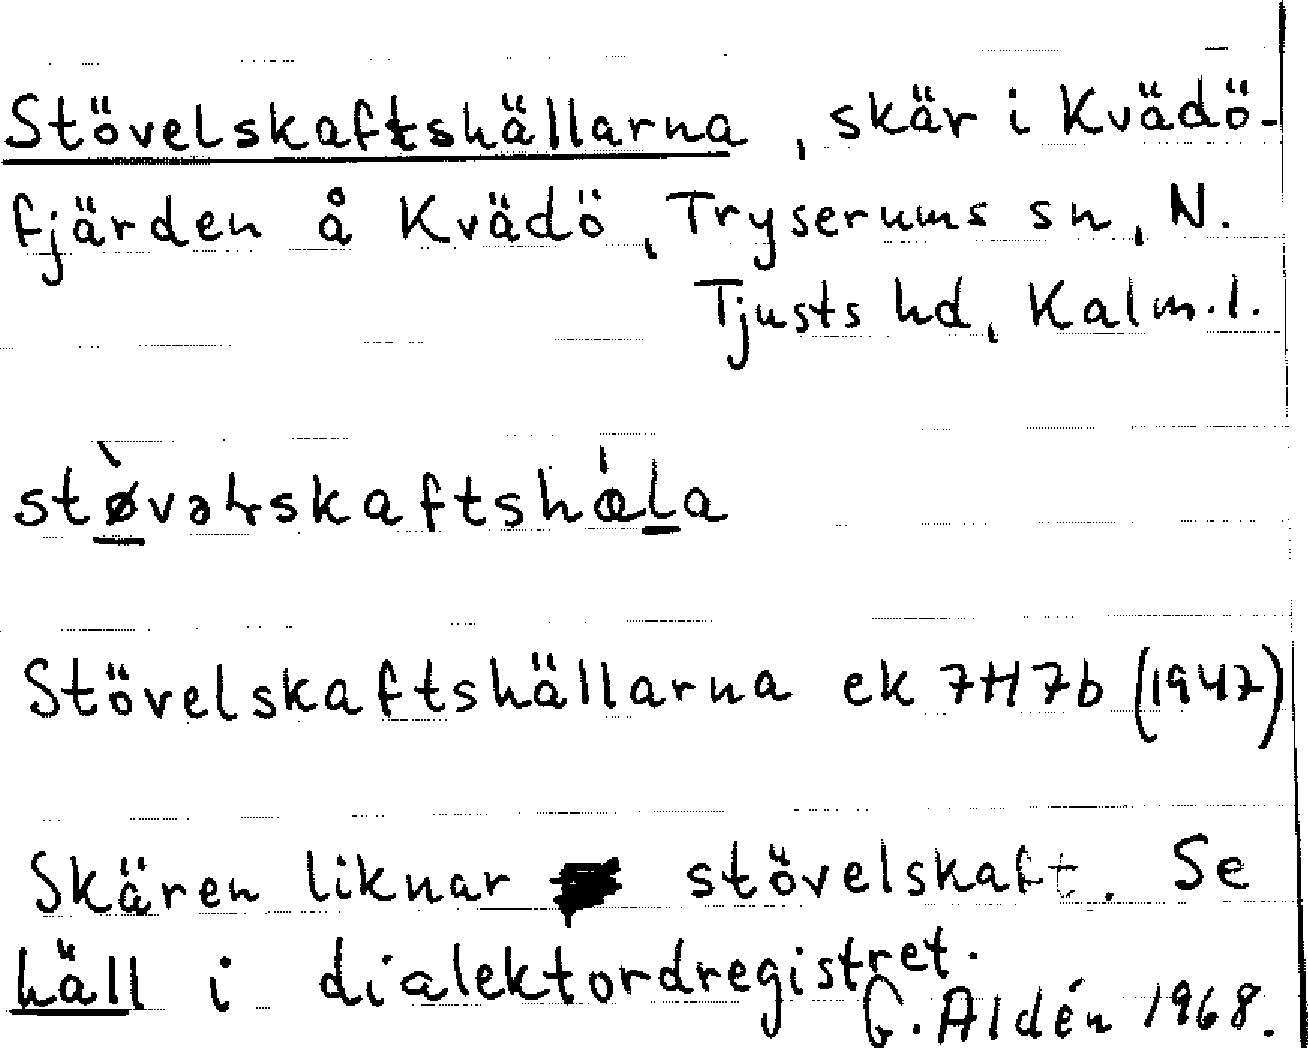 Stövelskaftshällarna, skär i Kvädö-
fjärden å Kvädö, Tryserums sn, N.
Tjusts hd, Kalm.l.
Stövelskaftshällarna ek 7H7b (1947)
Skären liknar stövelskaft. Se
häll i dialektordregistret.
G. Aldén 1968.